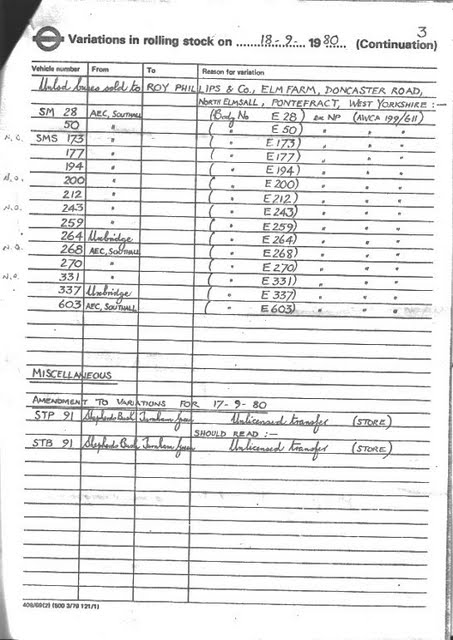 3
Variations in rolling stock on 18-9- 1980 (Continuation)
Vehicle number From To Reason for variation
Unlsd buses sold to ROY PHILLIPS & Co., ELM FARM, DONCASTER ROAD,
NORTH ELMSALL, PONTEFRACT, WEST YORKSHIRE :-
SM 28 AEC, SOUTHALL (Body No E 28) ex NP (AWCA 199/611)
50 " ( " E 50) " " " "
N.O. SMS 173 " ( " E 173) " " " "
177 " ( " E 177) " " " "
194 " ( " E 194) " " " "
N.O. 200 " ( " E 200) " " " "
212 " ( " E 212) " " " "
N.O. 243 " ( " E 243) " " " "
259 " ( " E 259) " " " "
264 Uxbridge ( " E 264) " " " "
N.O. 268 AEC, SOUTHALL ( " E 268) " " " "
270 " ( " E 270) " " " "
N.O. 331 " ( " E 331) " " " "
337 Uxbridge ( " E 337) " " " "
603 AEC, SOUTHALL ( " E 603) " " " "
MISCELLANEOUS
AMENDMENT TO VARIATIONS FOR 17-9-80
STP 91 Shepherds Bush Turnham Green Unlicensed transfer (STORE)
SHOULD READ :-
STB 91 Shepherds Bush Turnham Green Unlicensed transfer (STORE)
409/69(2) (500 3/78 121/1)